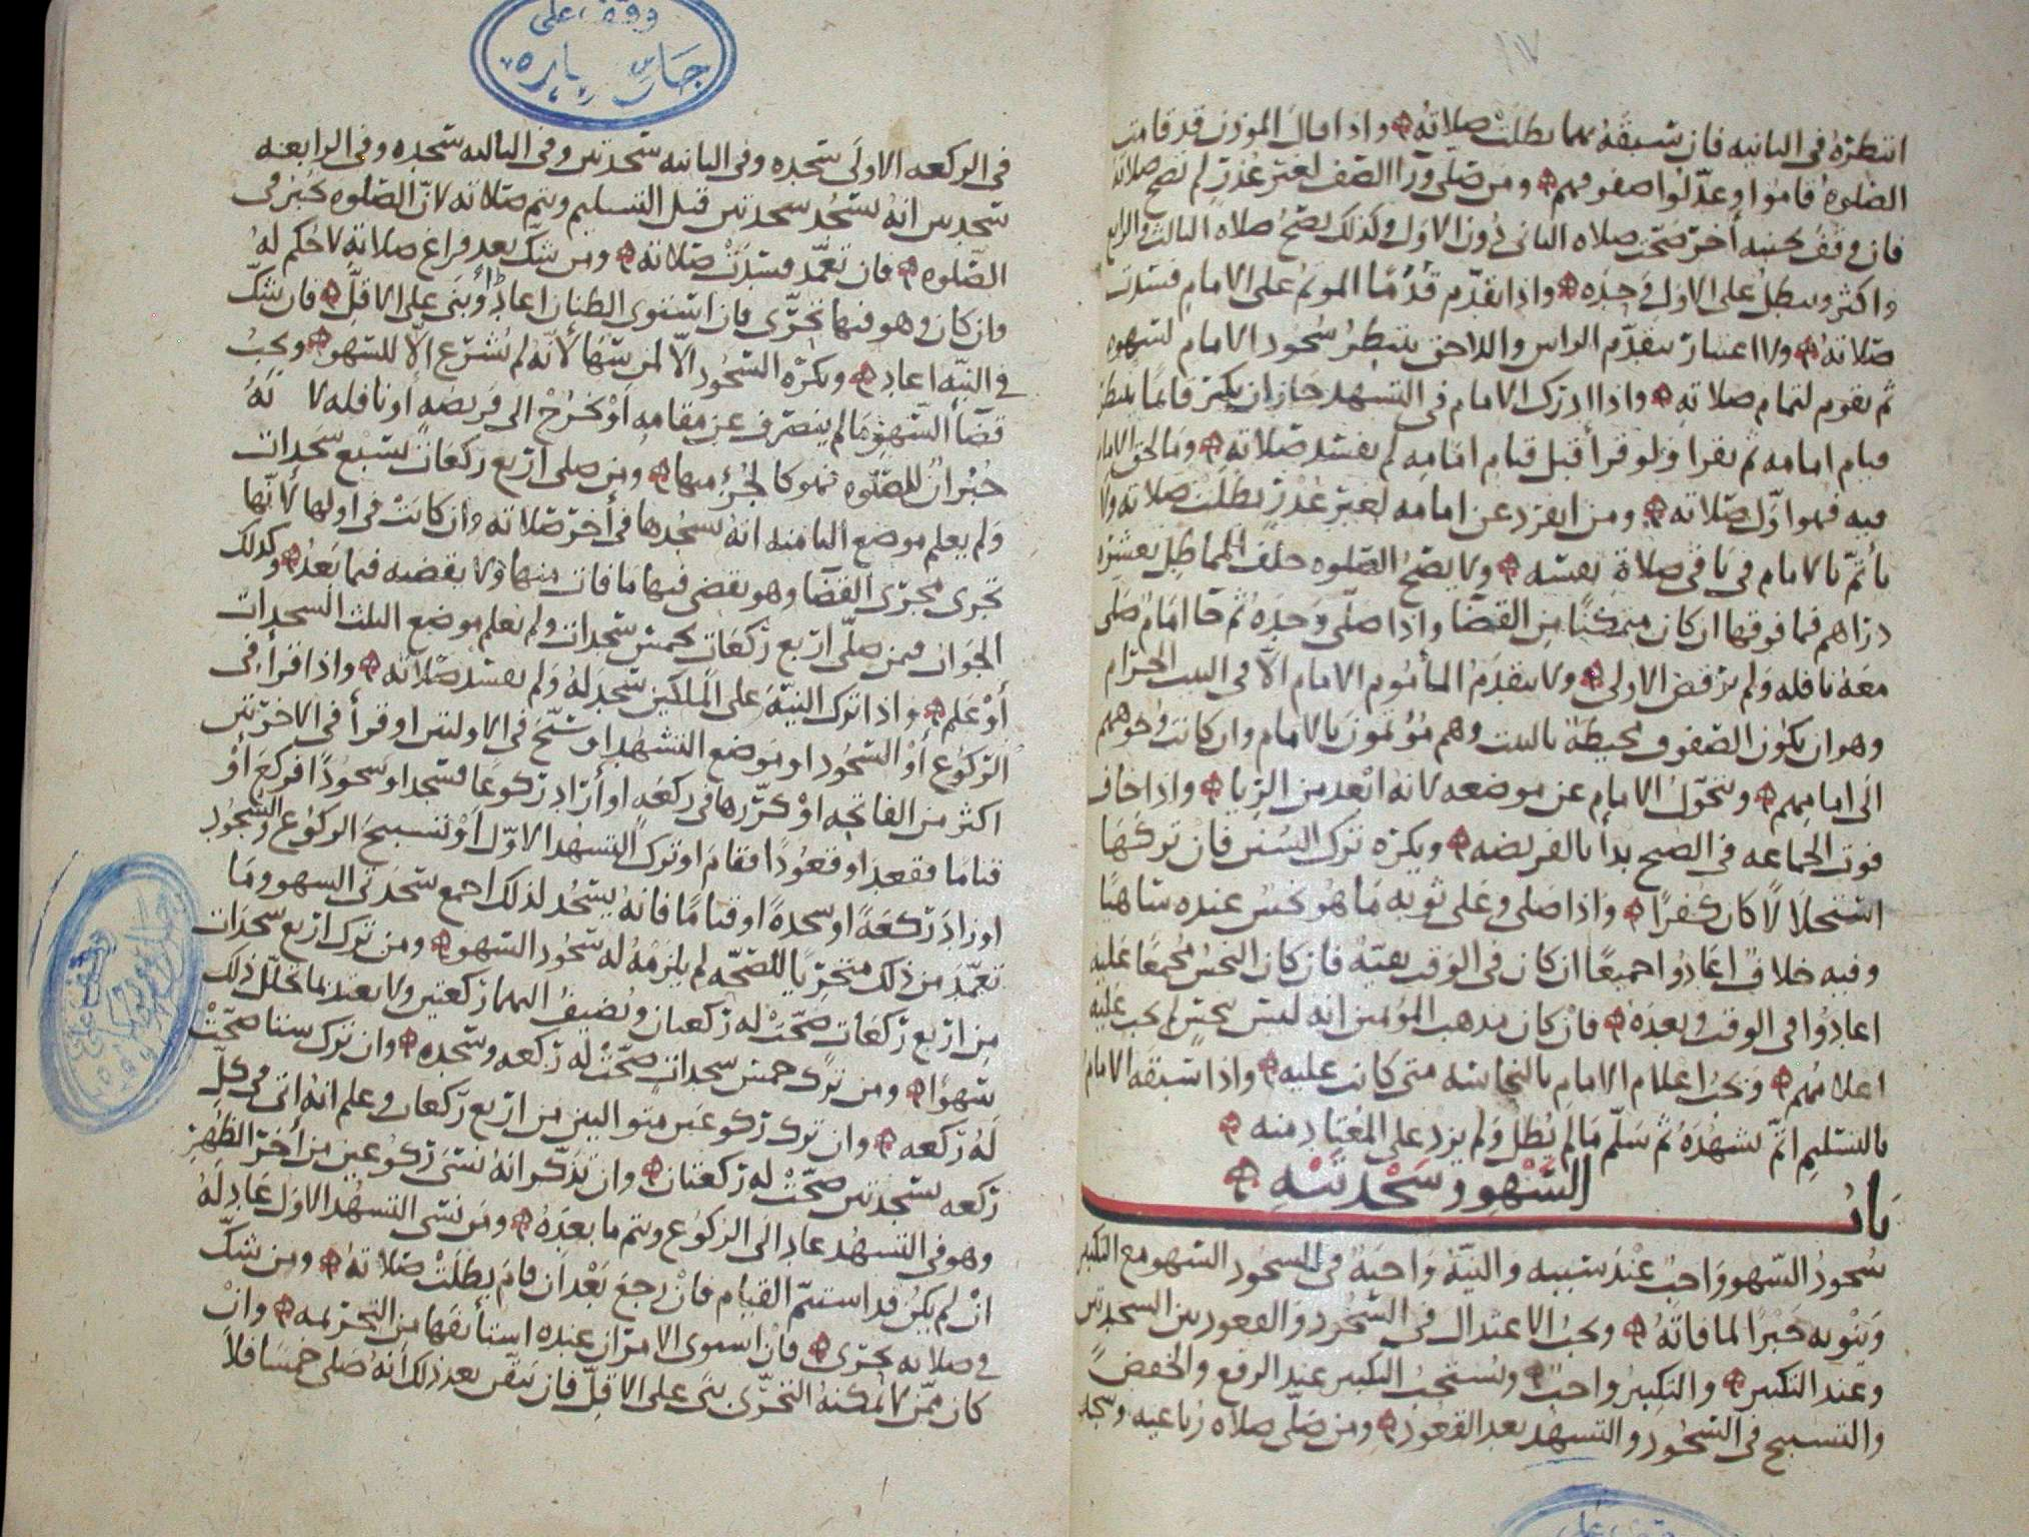 انتظره في الثانيه فان سبقه بهما بطلت صلاته واذا قال الموذن قد قامت
الصلوه قاموا وعدلوا صفوفهم ومن صلى ورا الصف لغير عذر لم تصح صلاته
فان وقف بجنبه اخر صحت صلاه الثانى دون الاول وكذلك تصح صلاه الثالث والرابع
واكثر وتبطل على الاول وحده واذا تقدم قدما الموتم على الامام فسدت
صلاته ولا اعتبار بتقدم الراس واللاحق ينتظر سجود الامام لسهوه
ثم يقوم لتمام صلاته واذا ادرك الامام في التشهد جاز ان يكبر قائما ينتظر
قيام امامه ثم يقرا ولو قرأ قبل قيام امامه لم يفسد صلاته وما لحق الامام
فيه فهو اول صلاته ومن انفرد عن امامه لغير عذر بطلت صلاته ولا
يأتم بالامام في باقى صلاة نفسه ولا يصح الصلوه خلف المماطل بعشره
دراهم فما فوقها ان كان متمكنا من القضا واذا صلى وحده ثم جا امام صلى
معه نافله ولم يرفض الاولى ولا يتقدم المأموم الامام الا في البيت الحرام
وهو ان يكون الصفوف محيطة بالبيت وهم مؤتمون بالامام وان كانت وجوههم
الى امامهم ويتحول الامام عن موضعه لانه ابعد من الريا واذا خاف
فوت الجماعه في الصبح بدأ بالفريضه ويكره ترك السنن فان تركها
استحلالا كان كفرا واذا صلى وعلى ثوبه ما هو نجس عنده ساهيا
وفيه خلاف اعادوا جميعا ان كان في الوقت بقية فان كان النجس مجمعا عليه
اعادوا في الوقت وبعده فان كان مذهب المؤتمين انه ليس بنجس لم يجب عليه
اعلامهم ويجب اعلام الامام بالنجاسه متى كانت عليه واذا سبقه الامام
بالتسليم اتم تشهده ثم سلم ما لم يطل ولم يزد على المعتاد منه
باب السهو وسجدتيه
سجود السهو واجب عند سببه والنية واجبة في السجود السهو مع التكبير
وينويه جبرا لما فاته ويجب الاعتدال في السجود والقعود بين السجدتين
وعند التكبير والتكبير واجب ويستحب التكبير عند الرفع والخفض
والتسبيح في السجود والتشهد بعد القعود ومن صلى صلاه رباعيه وسجد
في الركعه الاولى سجده وفي الثانيه سجدتين وفي الثالثه سجده وفي الرابعه
سجدتين انه يسجد سجدتين قبل التسليم ويتم صلاته لان الصلوه تجبر في
الصلوه فان تعمد فسدت صلاته ومن شك بعد فراغ صلاته لا حكم له
وان كان وهو فيها تحرى فان استوى الظنان اعاد أو بنى على الاقل فان شك
في النيه اعاد ويكره السجود الا لمن سها لانه لم يشرع الا للسهو ويجب
قضا السهو ما لم ينصرف عن مقامه او يخرج الى فريضه او نافله لانه
جبران للصلوه فهو كالجزء منها ومن صلى اربع ركعات بسبع سجدات
ولم يعلم موضع الثامنه انه يسجدها في أخر صلاته وان كانت في اولها لانها
تجرى مجرى القضا وهو يقضى فيها ما فات منها ولا يقضيه فيما بعد وكذلك
الجواب فيمن صلى اربع ركعات بخمس سجدات ولم يعلم موضع الثلث السجدات
أو علم واذا ترك النية على الملكين سجد له ولم يفسد صلاته واذا قرأ في
الركوع أو السجود او موضع التشهد او سبح في الاولتين او قرأ في الاخرتين
اكثر من الفاتحه او كررها في ركعة او أراد ركوعا فسجد او سجودا فركع أو
قياما فقعد او قعودا فقام او ترك التشهد الاول او تسبيح الركوع والسجود
او زاد ركعة او سجدة او قياما فانه يسجد لذلك اجمع سجدتى السهو وما
تعمد من ذلك متحريا للصحه لم يلزمه له سجود السهو ومن ترك اربع سجدات
من اربع ركعات صحت له ركعتان ويضيف اليهما ركعتين ولا يعتد بما تخلل ذلك
سهوا ومن ترك خمس سجدات صحت له ركعه وسجده وان ترك ستا صحت
له ركعه وان ترك ركوعين متواليين من اربع ركعات وعلم انه اتى في كل
ركعه بسجدتين صحت له ركعتان وان تذكر انه نسى ركوعين من أخر الظهر
وهو في التشهد عاد الى الركوع ويتم ما بعده ومن نسى التشهد الاول عاد له
ان لم يكن قد استتم القيام فان رجع بعد ان قام بطلت صلاته ومن شك
في صلاته تحرى فان استوى الامران عنده استأنفها من التحريمه وان
كان ممن لا يمكنه التحرى بنى على الاقل فان تيقن بعد ذلك انه صلى خمسا فلا
وقف على